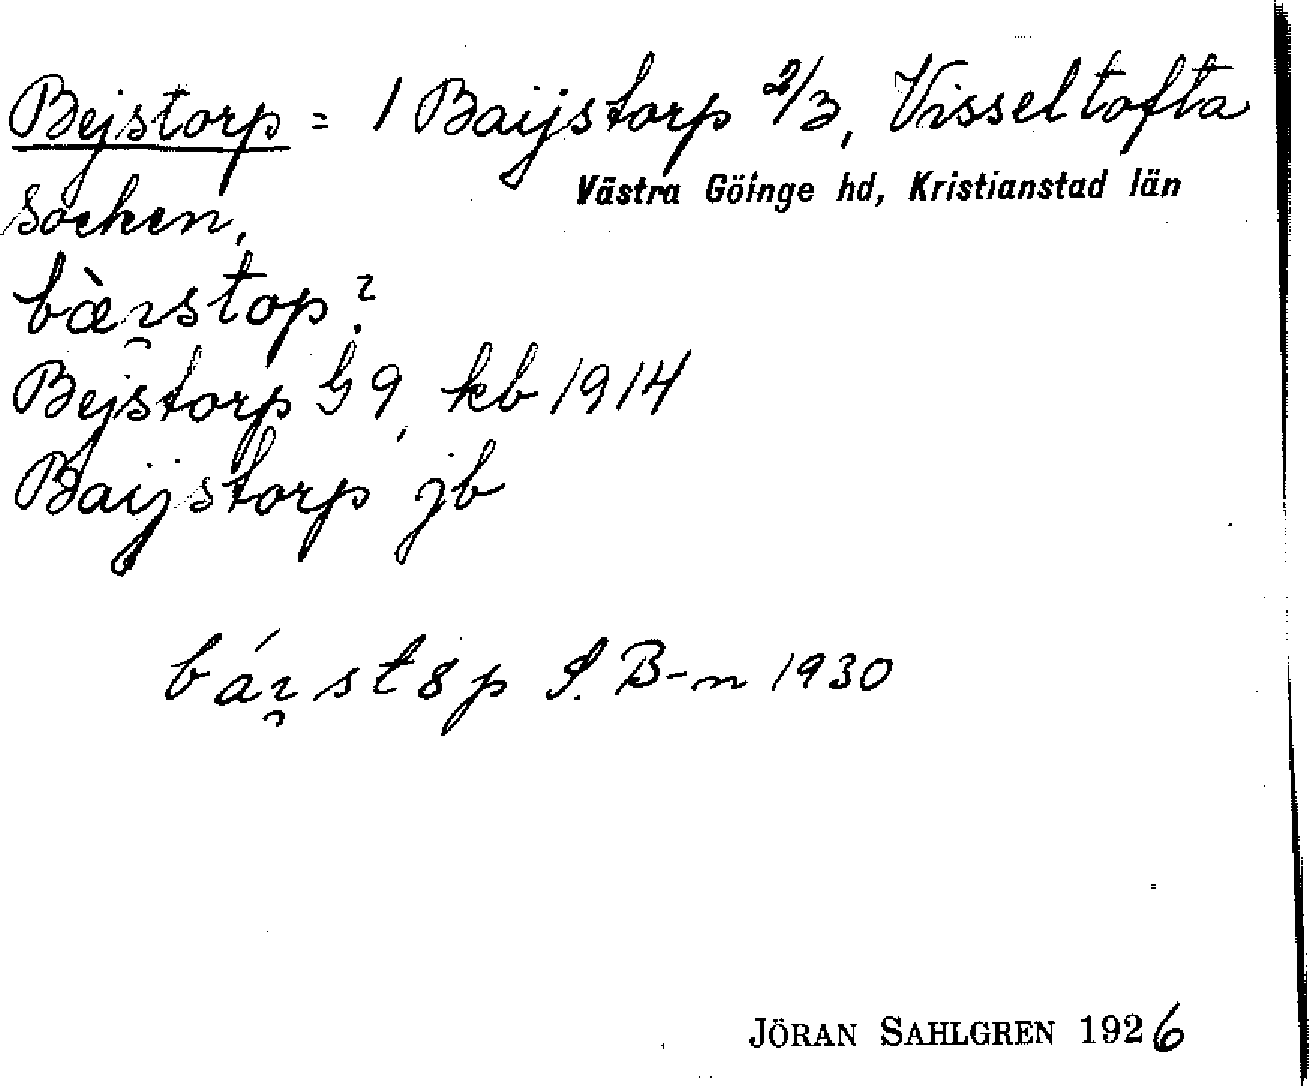 Bejstorp = 1 Baijstorp 2/3, Visseltofta
Västra Göinge hd, Kristianstad län
socken,
bæ̀ɿ̯stop?
Bejstorp G 9, kb 1914
Baijstorp jb
báɿ̯stȣp S. B-n 1930
JÖRAN SAHLGREN 1926